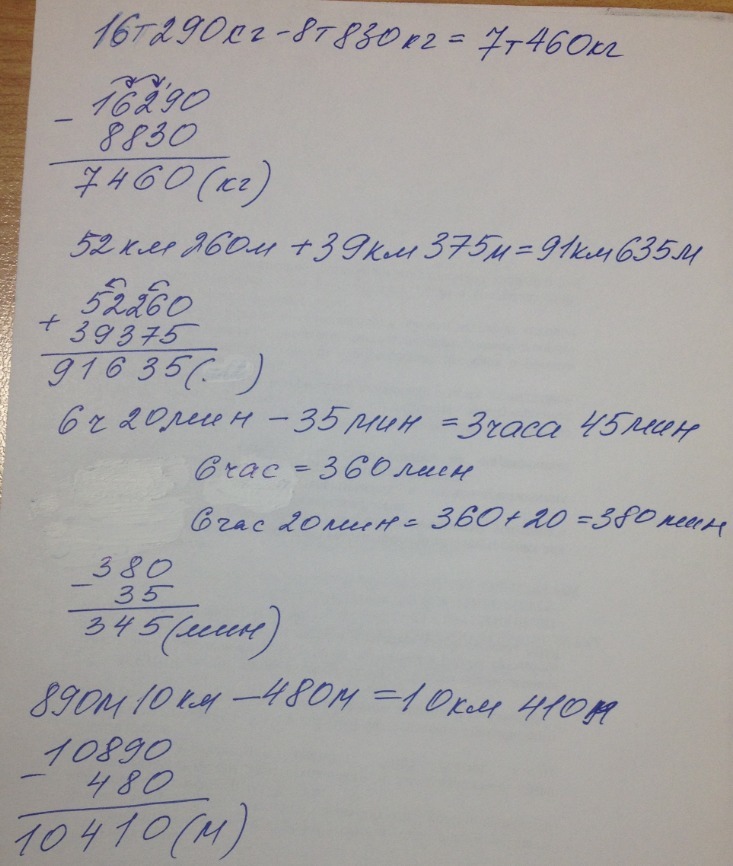 16т290кг-8т830кг=7т460кг
-16290
8830
7460(кг)
52км 260м+39км 375м=91км635м
+52260
39375
91635(. )
6ч 20мин -35мин =3часа 45мин
6час =360мин
6час 20мин=360+20=380мин
-380
35
345(мин)
890м 10км -480м =10км 410м
-10890
480
10410(м)